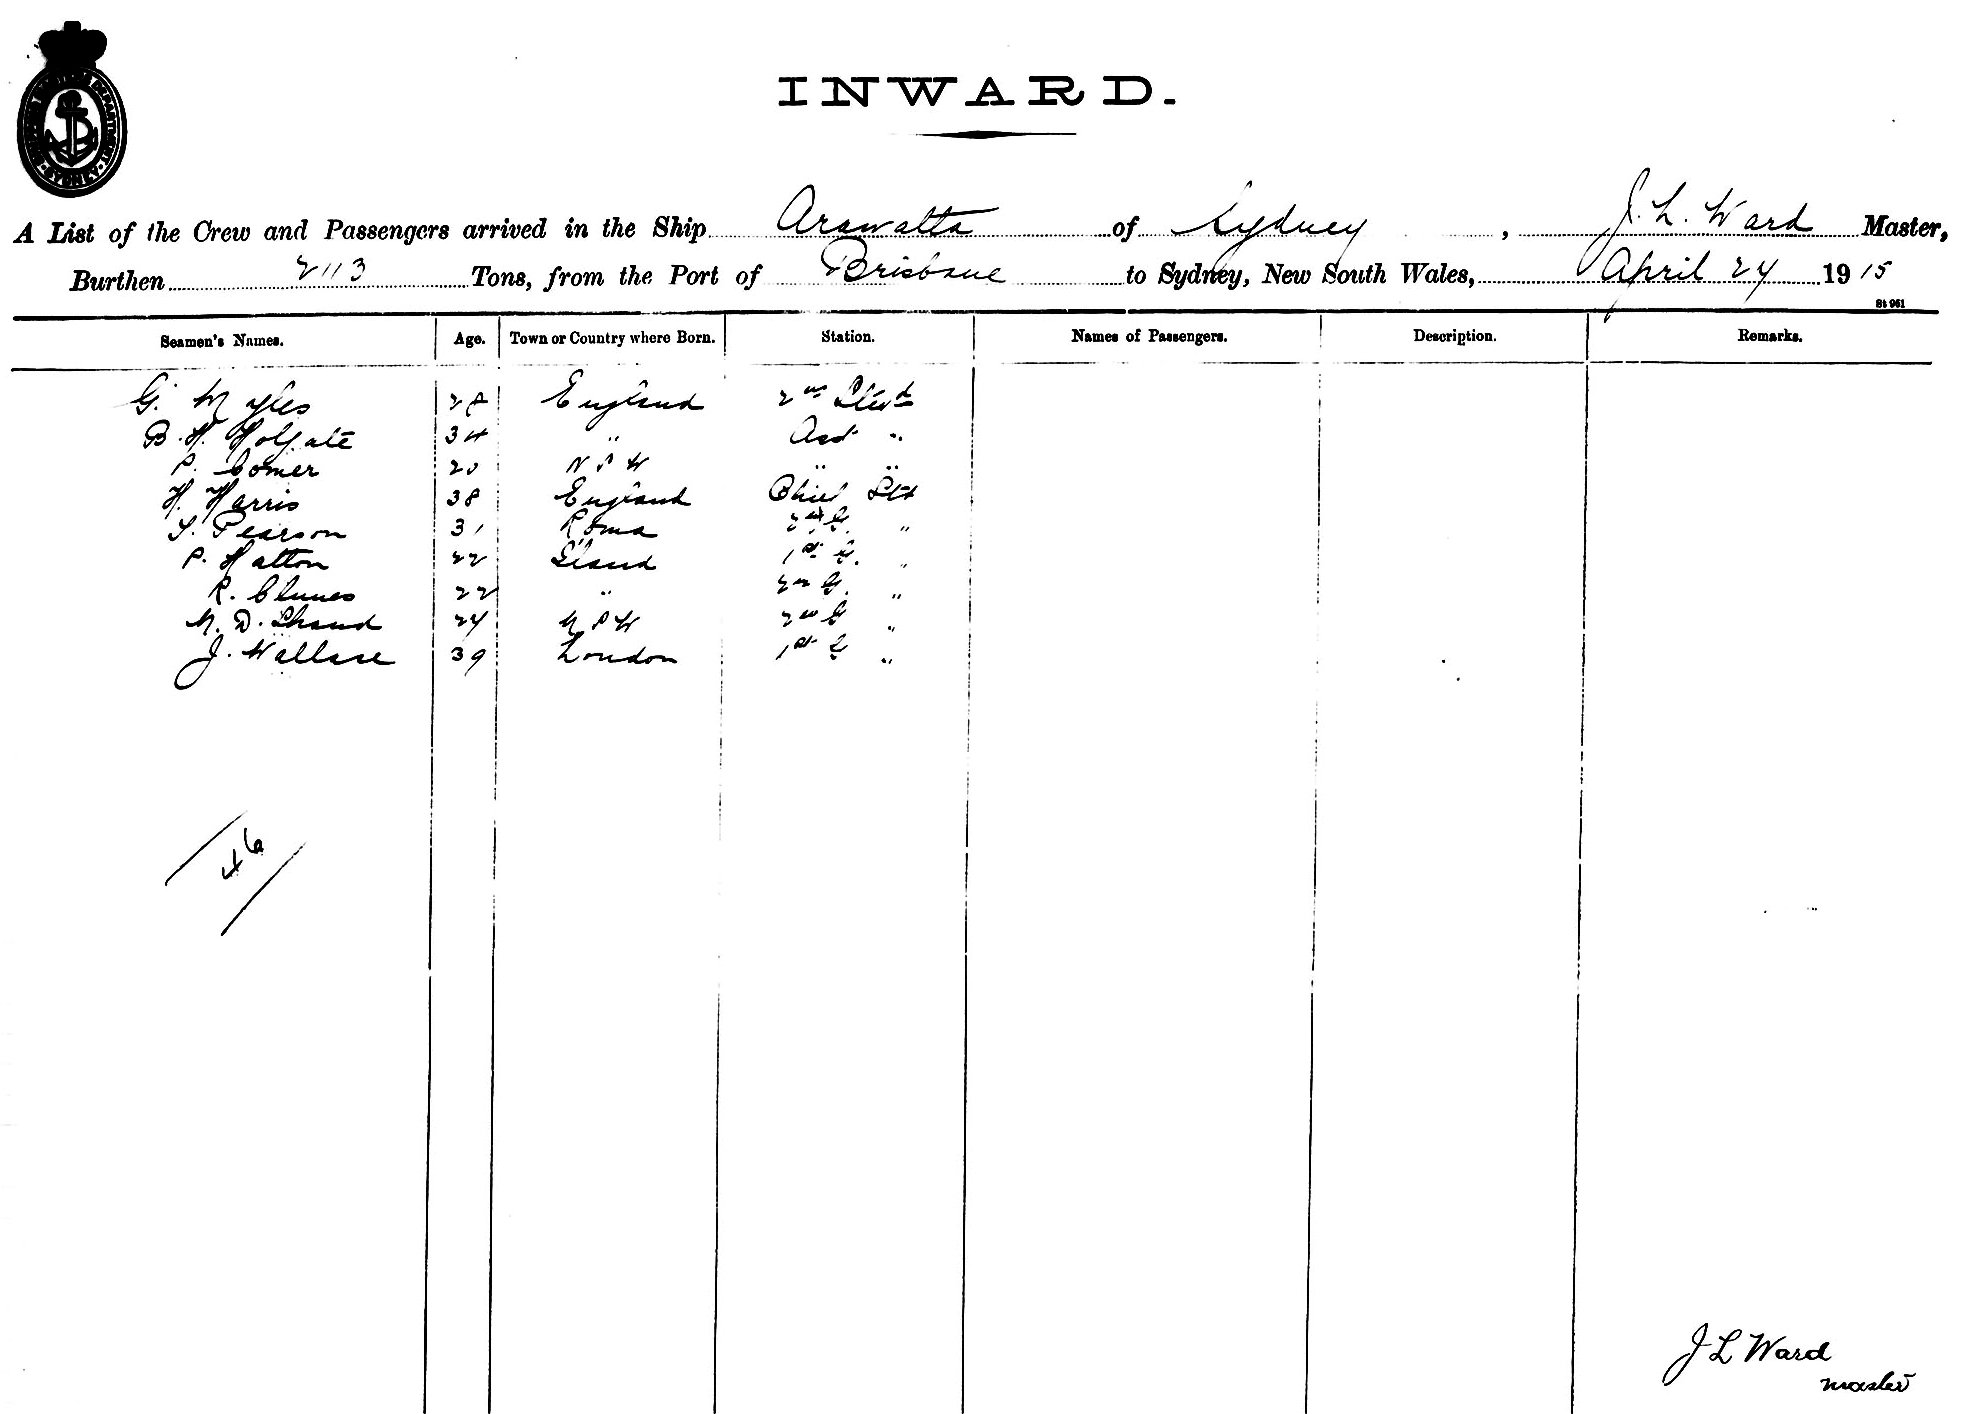 INWARD.
A List of the Crew and Passengers arrived in the Ship Arawatta of Sydney, J. L. Ward Master,
Burthen 2113 Tons, from the Port of Brisbane to Sydney, New South Wales, April 24 1915
St 961
Seamen's Names. Age. Town or Country where Born. Station. Names of Passengers. Description. Remarks.
G. Myles 28 England 2nd Stewd
B. H. Holgate 34 " Asst "
P. Comer 20 N S W " "
H. Harris 38 England Chief
Pearson 31 Roma 2nd "
P. Hatton 22 1st "
R. Clunes 22 " 2nd "
24 N S W 2nd "
J. Wallace 39 London 1st "
46
J L Ward
Master
SYDNEY